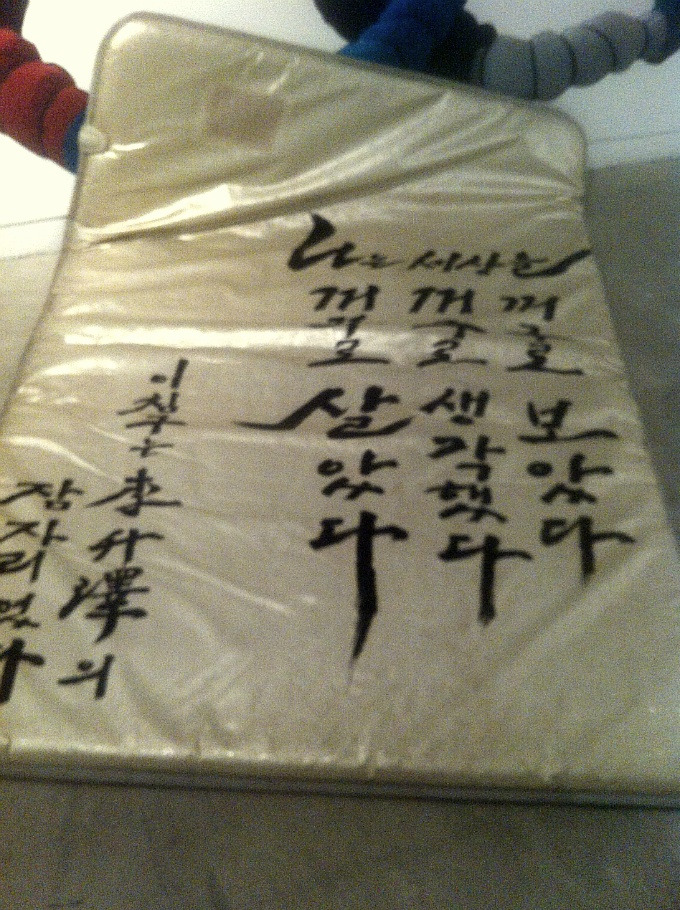 나는 세상을
꺼꾸로 보았다
꺼꾸로 생각했다
꺼꾸로 살았다
이 침구는 李升澤의
잠자리였다